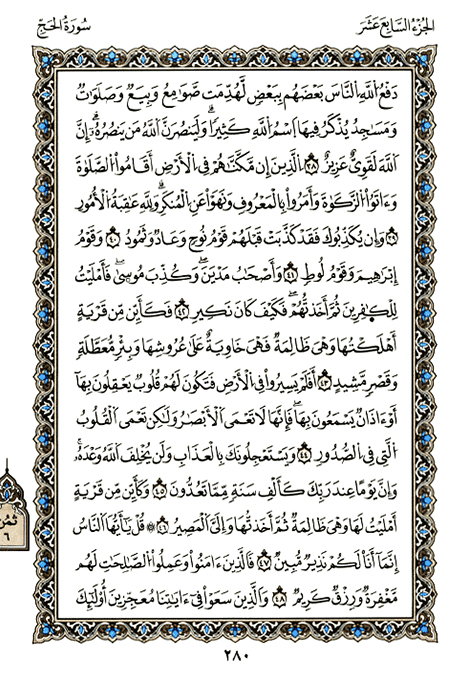 الجُزْءُ السَّابِعَ عَشَرَ
سُورَةُ الحَجِّ
دَفْعُ اللَّهِ النَّاسَ بَعْضَهُم بِبَعْضٍ لَّهُدِّمَتْ صَوَامِعُ وَبِيَعٌ وَصَلَوَاتٌ
وَمَسَاجِدُ يُذْكَرُ فِيهَا اسْمُ اللَّهِ كَثِيرًا وَلَيَنصُرَنَّ اللَّهُ مَن يَنصُرُهُ إِنَّ
اللَّهَ لَقَوِيٌّ عَزِيزٌ ٣٨ الَّذِينَ إِن مَّكَّنَّاهُمْ فِي الْأَرْضِ أَقَامُوا الصَّلَوٰةَ
وَءَاتَوُا الزَّكَوٰةَ وَأَمَرُوا بِالْمَعْرُوفِ وَنَهَوْا عَنِ الْمُنكَرِ وَلِلَّهِ عَٰقِبَةُ الْأُمُورِ
٣٩ وَإِن يُكَذِّبُوكَ فَقَد كَّذَّبَت قَّبْلَهُمْ قَوْمُ نُوحٍ وَعَادٌ وَثَمُودُ ٤٠ وَقَوْمُ
إِبْرَٰهِيمَ وَقَوْمُ لُوطٍ ٤١ وَأَصْحَٰبُ مَدْيَنَ وَكُذِّبَ مُوسَىٰ فَأَمْلَيْتُ
لِلْكَٰفِرِينَ ثُمَّ أَخَذتُّهُمْ فَكَيْفَ كَانَ نَكِيرِ ٤٢ فَكَأَيِّن مِّن قَرْيَةٍ
أَهْلَكْتُهَا وَهْيَ ظَالِمَةٌ فَهْيَ خَاوِيَةٌ عَلَىٰ عُرُوشِهَا وَبِئْرٍ مُّعَطَّلَةٍ
وَقَصْرٍ مَّشِيدٍ ٤٣ أَفَلَمْ يَسِيرُوا فِي الْأَرْضِ فَتَكُونَ لَهُمْ قُلُوبٌ يَعْقِلُونَ بِهَا
أَوْ ءَاذَانٌ يَسْمَعُونَ بِهَا فَإِنَّهَا لَا تَعْمَى الْأَبْصَٰرُ وَلَٰكِن تَعْمَى الْقُلُوبُ
الَّتِي فِي الصُّدُورِ ٤٤ وَيَسْتَعْجِلُونَكَ بِالْعَذَابِ وَلَن يُخْلِفَ اللَّهُ وَعْدَهُ
وَإِنَّ يَوْمًا عِندَ رَبِّكَ كَأَلْفِ سَنَةٍ مِّمَّا تَعُدُّونَ ٤٥ وَكَأَيِّن مِّن قَرْيَةٍ
أَمْلَيْتُ لَهَا وَهْيَ ظَالِمَةٌ ثُمَّ أَخَذتُّهَا وَإِلَيَّ الْمَصِيرُ ٤٦ ۞ قُلْ يَٰأَيُّهَا النَّاسُ
إِنَّمَا أَنَا لَكُمْ نَذِيرٌ مُّبِينٌ ٤٧ فَالَّذِينَ ءَامَنُوا وَعَمِلُوا الصَّٰلِحَٰتِ لَهُم
مَّغْفِرَةٌ وَرِزْقٌ كَرِيمٌ ٤٨ وَالَّذِينَ سَعَوْا فِي ءَايَٰتِنَا مُعَجِّزِينَ أُولَٰئِكَ
ثُمُن
٦
٢٨٠